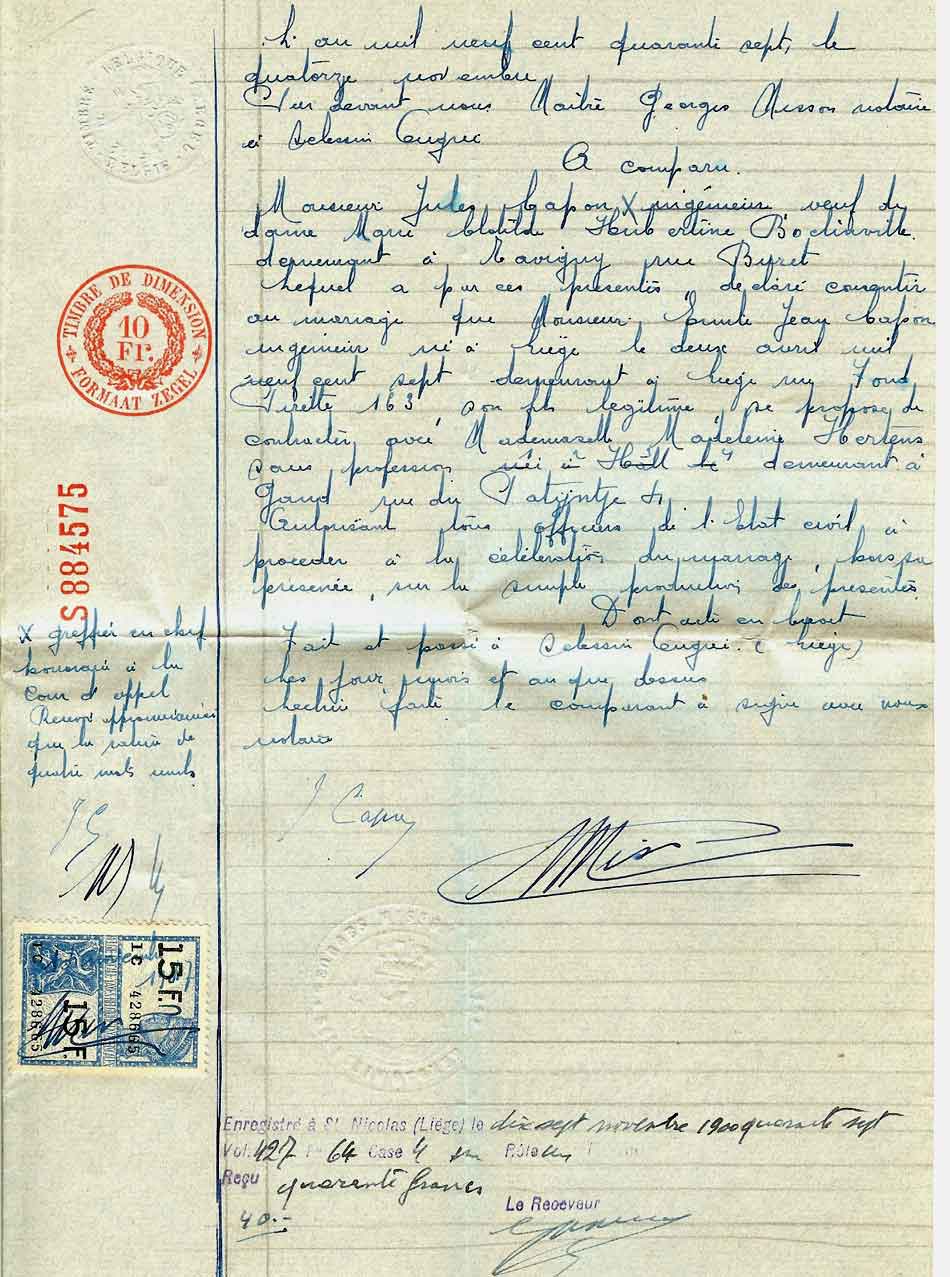 L'an mil neuf cent quarante sept, le
quatorze novembre
Par devant nous Maître Georges Misson notaire
à Sclessin Ougrée
A comparu.
Monsieur Jules Capon X ingénieur veuf de
dame Marie Clotilde Hubertine Bochinville
demeurant à Tavigny rue Buret
Lequel a par ces présentes, déclaré consentir
au mariage que Monsieur Emile Jean Capon
ingénieur né à Liège le deux avril mil
neuf cent sept demeurant à Liège rue Fond
Pirette 163, son fils légitime, se propose de
contracter avec Mademoiselle Madeleine Hertens
sans profession née à demeurant à
Gand rue du Patijntje
Autorisant tous officiers de l'Etat civil à
procéder à la célébration du mariage, hors sa
présence, sur la simple production des présentes.
Dont acte en brevet
Fait et passé à Sclessin Ougrée. (Liège)
Les jour, mois et an que dessus
Lecture faite le comparant a signé avec nous
notaire
J Capon
BELGIQUE
TIMBRE DE DIMENSION
10
Fr.
FORMAAT ZEGEL
S884575
X greffier en chef
honoraire à la
Cour d'appel
Renvoi approuvé ainsi
que la rature de
quatre mots nuls
15 F.
1C 428665
15 F.
1C 428665
Enregistré à St. Nicolas (Liége) le dix sept novembre 1900 quarante sept
Vol. 427 F° 64 Case 4 Rôle un
Reçu quarante francs
40.-
Le Receveur